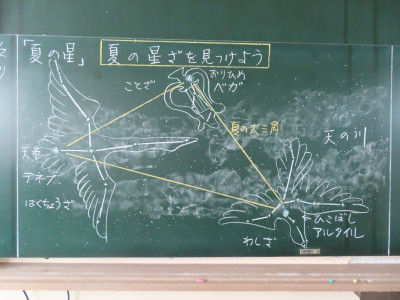 「夏の星」
夏の星ざを見つけよう
ことざ
おりひめ
ベガ
夏の大三角
天の川
デネブ
はくちょうざ
ひこぼし
アルタイル
わしざ